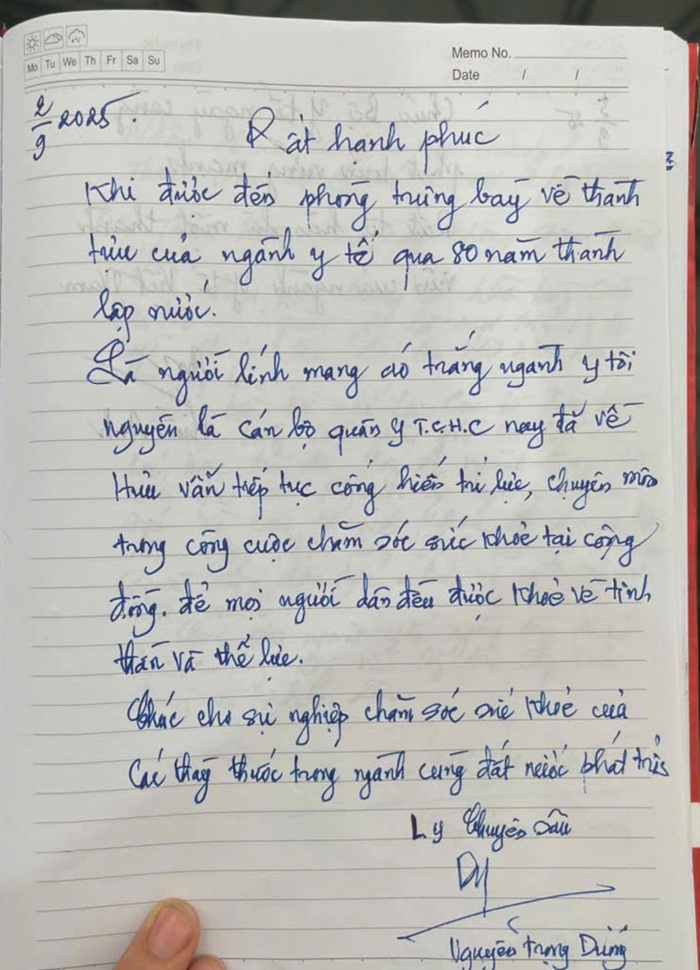 Mo Tu We Th Fr Sa Su
Memo No.
Date / /
2/9 2025.
Rất hạnh phúc
Khi được đến phòng trưng bày về thành
tựu của ngành y tế qua 80 năm thành
lập nước.
Là người lính mang áo trắng ngành y tôi
nguyên là cán bộ quân y T.C.H.C nay đã về
Hưu vẫn tiếp tục cống hiến trí lực, chuyên môn
trong công cuộc chăm sóc sức khỏe tại cộng
đồng. để mọi người dân đều được khỏe về tinh
thần và thể lực.
Chúc cho sự nghiệp chăm sóc sức khỏe của
các thầy thuốc trong ngành cùng đất nước phát triển
Nguyễn Trọng Dũng